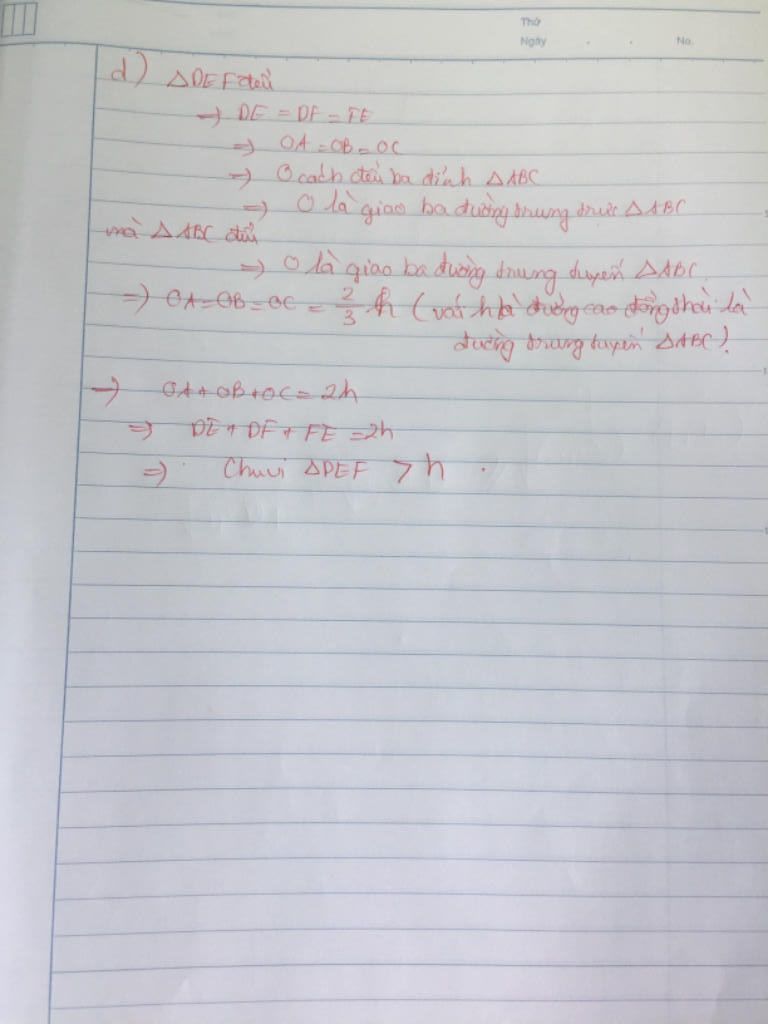 Thứ
Ngày . . No.
d) △DEF đều
→ DE = DF = FE
⇒ OA = OB = OC
→ O cách đều ba đỉnh △ABC
⇒ O là giao ba đường trung trực △ABC
mà △ABC đều
⇒ O là giao ba đường trung tuyến △ABC.
⇒ OA = OB = OC = 2/3 h (với h là đường cao đồng thời là
đường trung tuyến △ABC).
→ OA + OB + OC = 2h
⇒ DE + DF + FE = 2h
⇒ Chu vi △DEF > h.